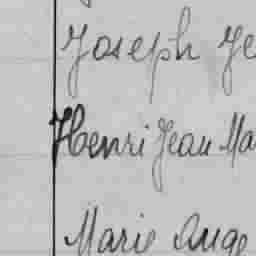 Joseph Je
Henri Jean Ma
Marie Ange